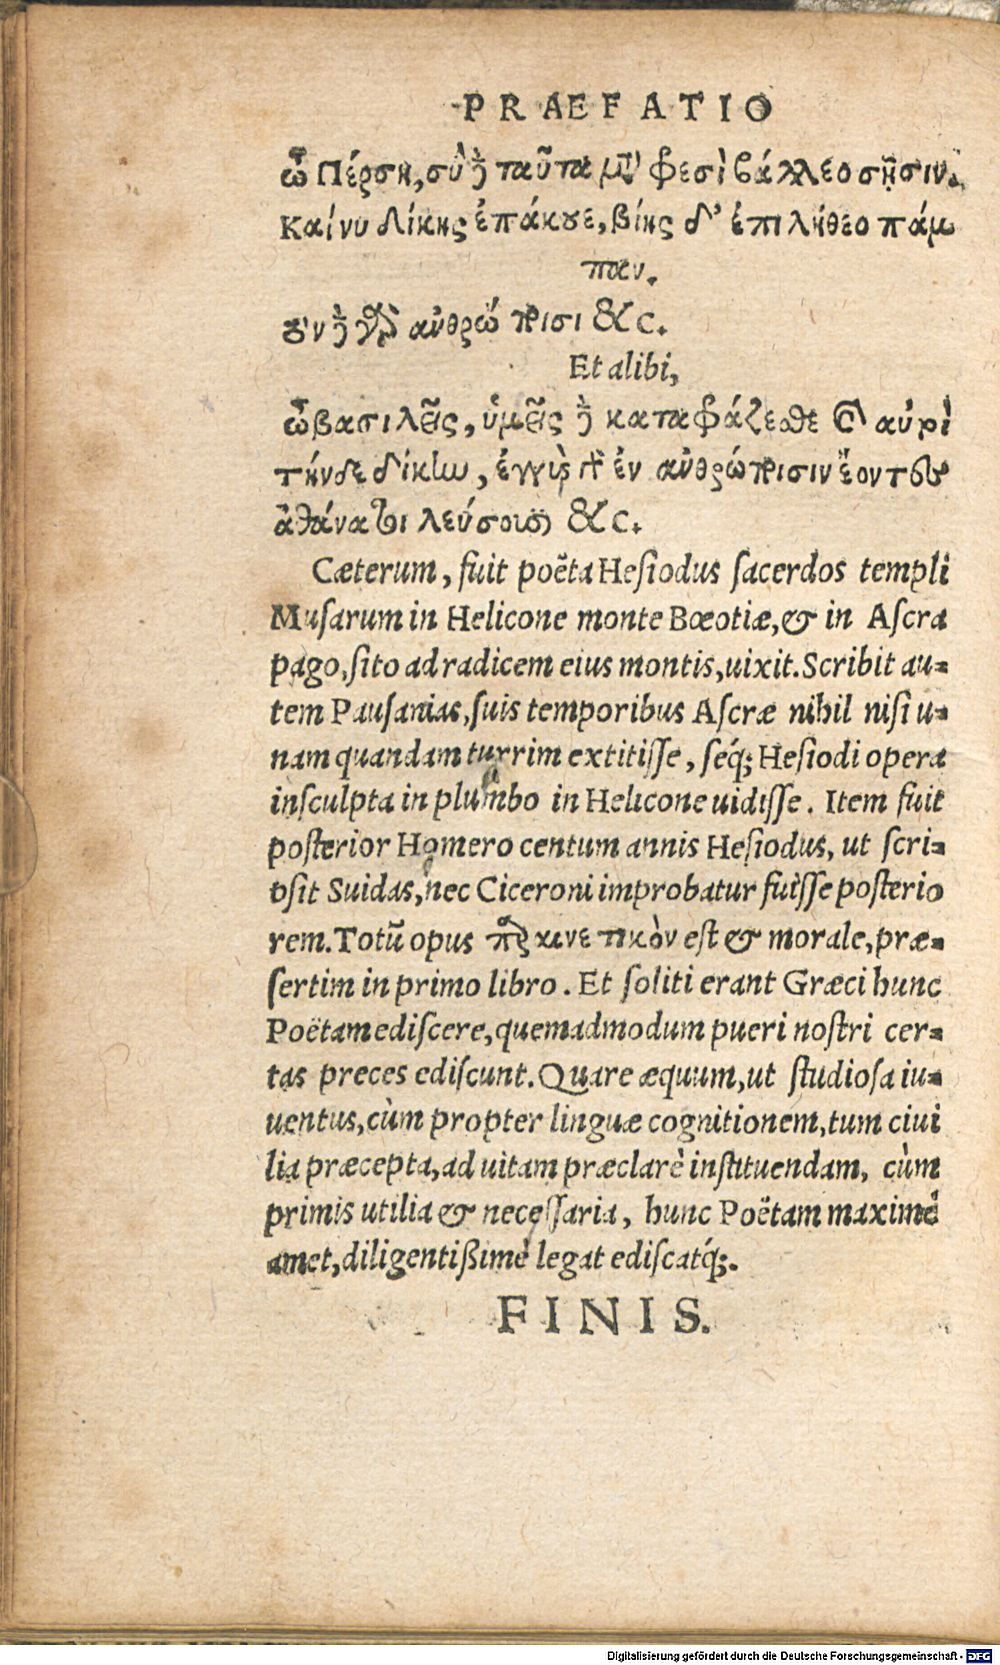 PRAEFATIO
ὦ Πέρση, σὺ δὲ ταῦτα μετὰ φρεσὶ βάλλεο σῇσιν.
Καί νυ δίκης ἐπάκουε, βίης δ' ἐπιλήθεο πάμ
παν.
ἀνθρώποισι &c.
Et alibi,
ὦ βασιλεῖς, ὑμεῖς δὲ καταφράζεσθε καὶ αὐτοὶ
τήνδε δίκην, ἐγγὺς γὰρ ἐν ἀνθρώποισιν ἐόντες
ἀθάνατοι λεύσουσι &c.
Cæterum, fuit poëta Hesiodus sacerdos templi
Musarum in Helicone monte Bœotiæ, & in Ascra
pago, sito ad radicem eius montis, uixit. Scribit au-
tem Pausanias, suis temporibus Ascræ nihil nisi u-
nam quandam turrim extitisse, seq́; Hesiodi opera
insculpta in plumbo in Helicone uidisse. Item fuit
posterior Homero centum annis Hesiodus, ut scri-
psit Suidas, nec Ciceroni improbatur fuisse posterio
rem. Totũ opus παρακινετικὸν est & morale, præ-
sertim in primo libro. Et soliti erant Græci hunc
Poëtam ediscere, quemadmodum pueri nostri cer-
tas preces ediscunt. Quare æquum, ut studiosa iu-
uentus, cùm propter linguæ cognitionem, tum ciui
lia præcepta, ad uitam præclarè instituendam, cùm
primis utilia & necessaria, hunc Poëtam maximè
amet, diligentißimè legat ediscatq́;.
FINIS.
Digitalisierung gefördert durch die Deutsche Forschungsgemeinschaft - DFG